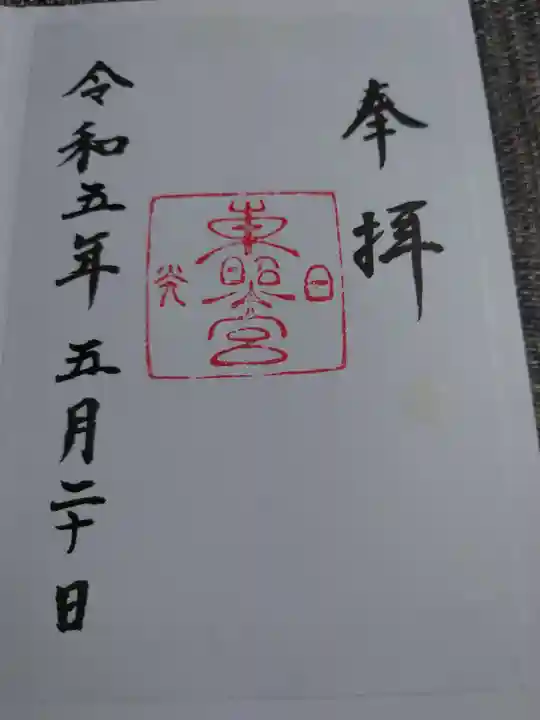 奉拝
日光
東照宮
令和五年 五月二十日